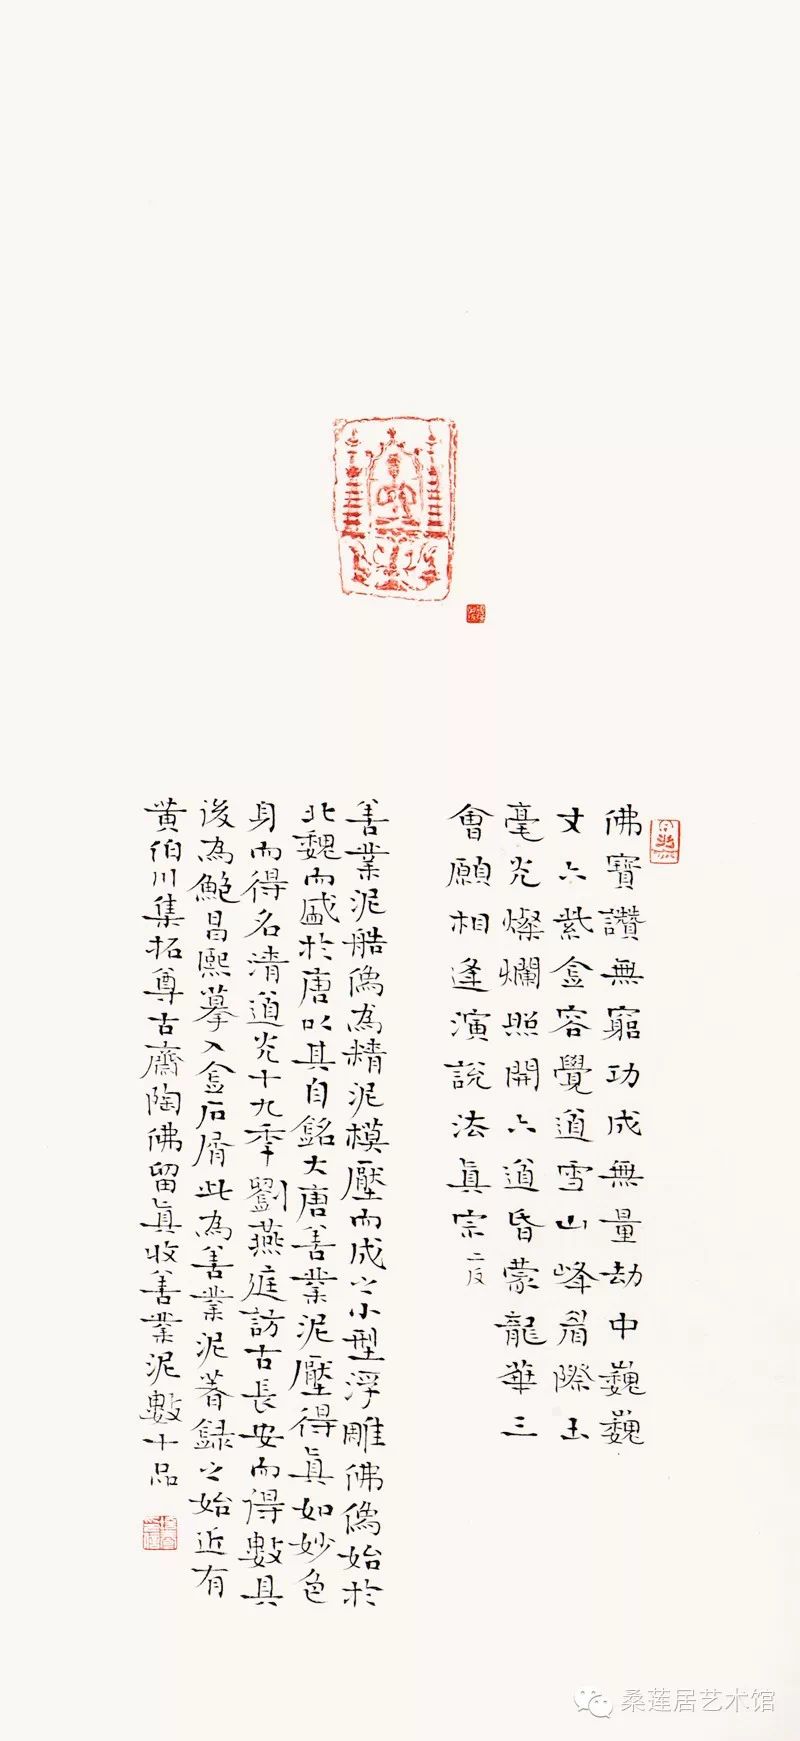 佛寶讚無窮功成無量劫中巍巍
丈六紫金容覺道雪山峰眉際玉
毫光燦爛照開六道昏蒙龍華三
會願相逢演說法眞宗
善業泥造像為精泥模壓而成之小型浮雕佛像始於
北魏而盛於唐以其自銘大唐善業泥壓得眞如妙色
身而得名清道光十九年劉燕庭訪古長安而得數具
後為鮑昌熙摹入金石屑此為善業泥著錄之始近有
黃伯川集拓尊古齋陶佛留眞收善業泥數十品
桑莲居艺术馆